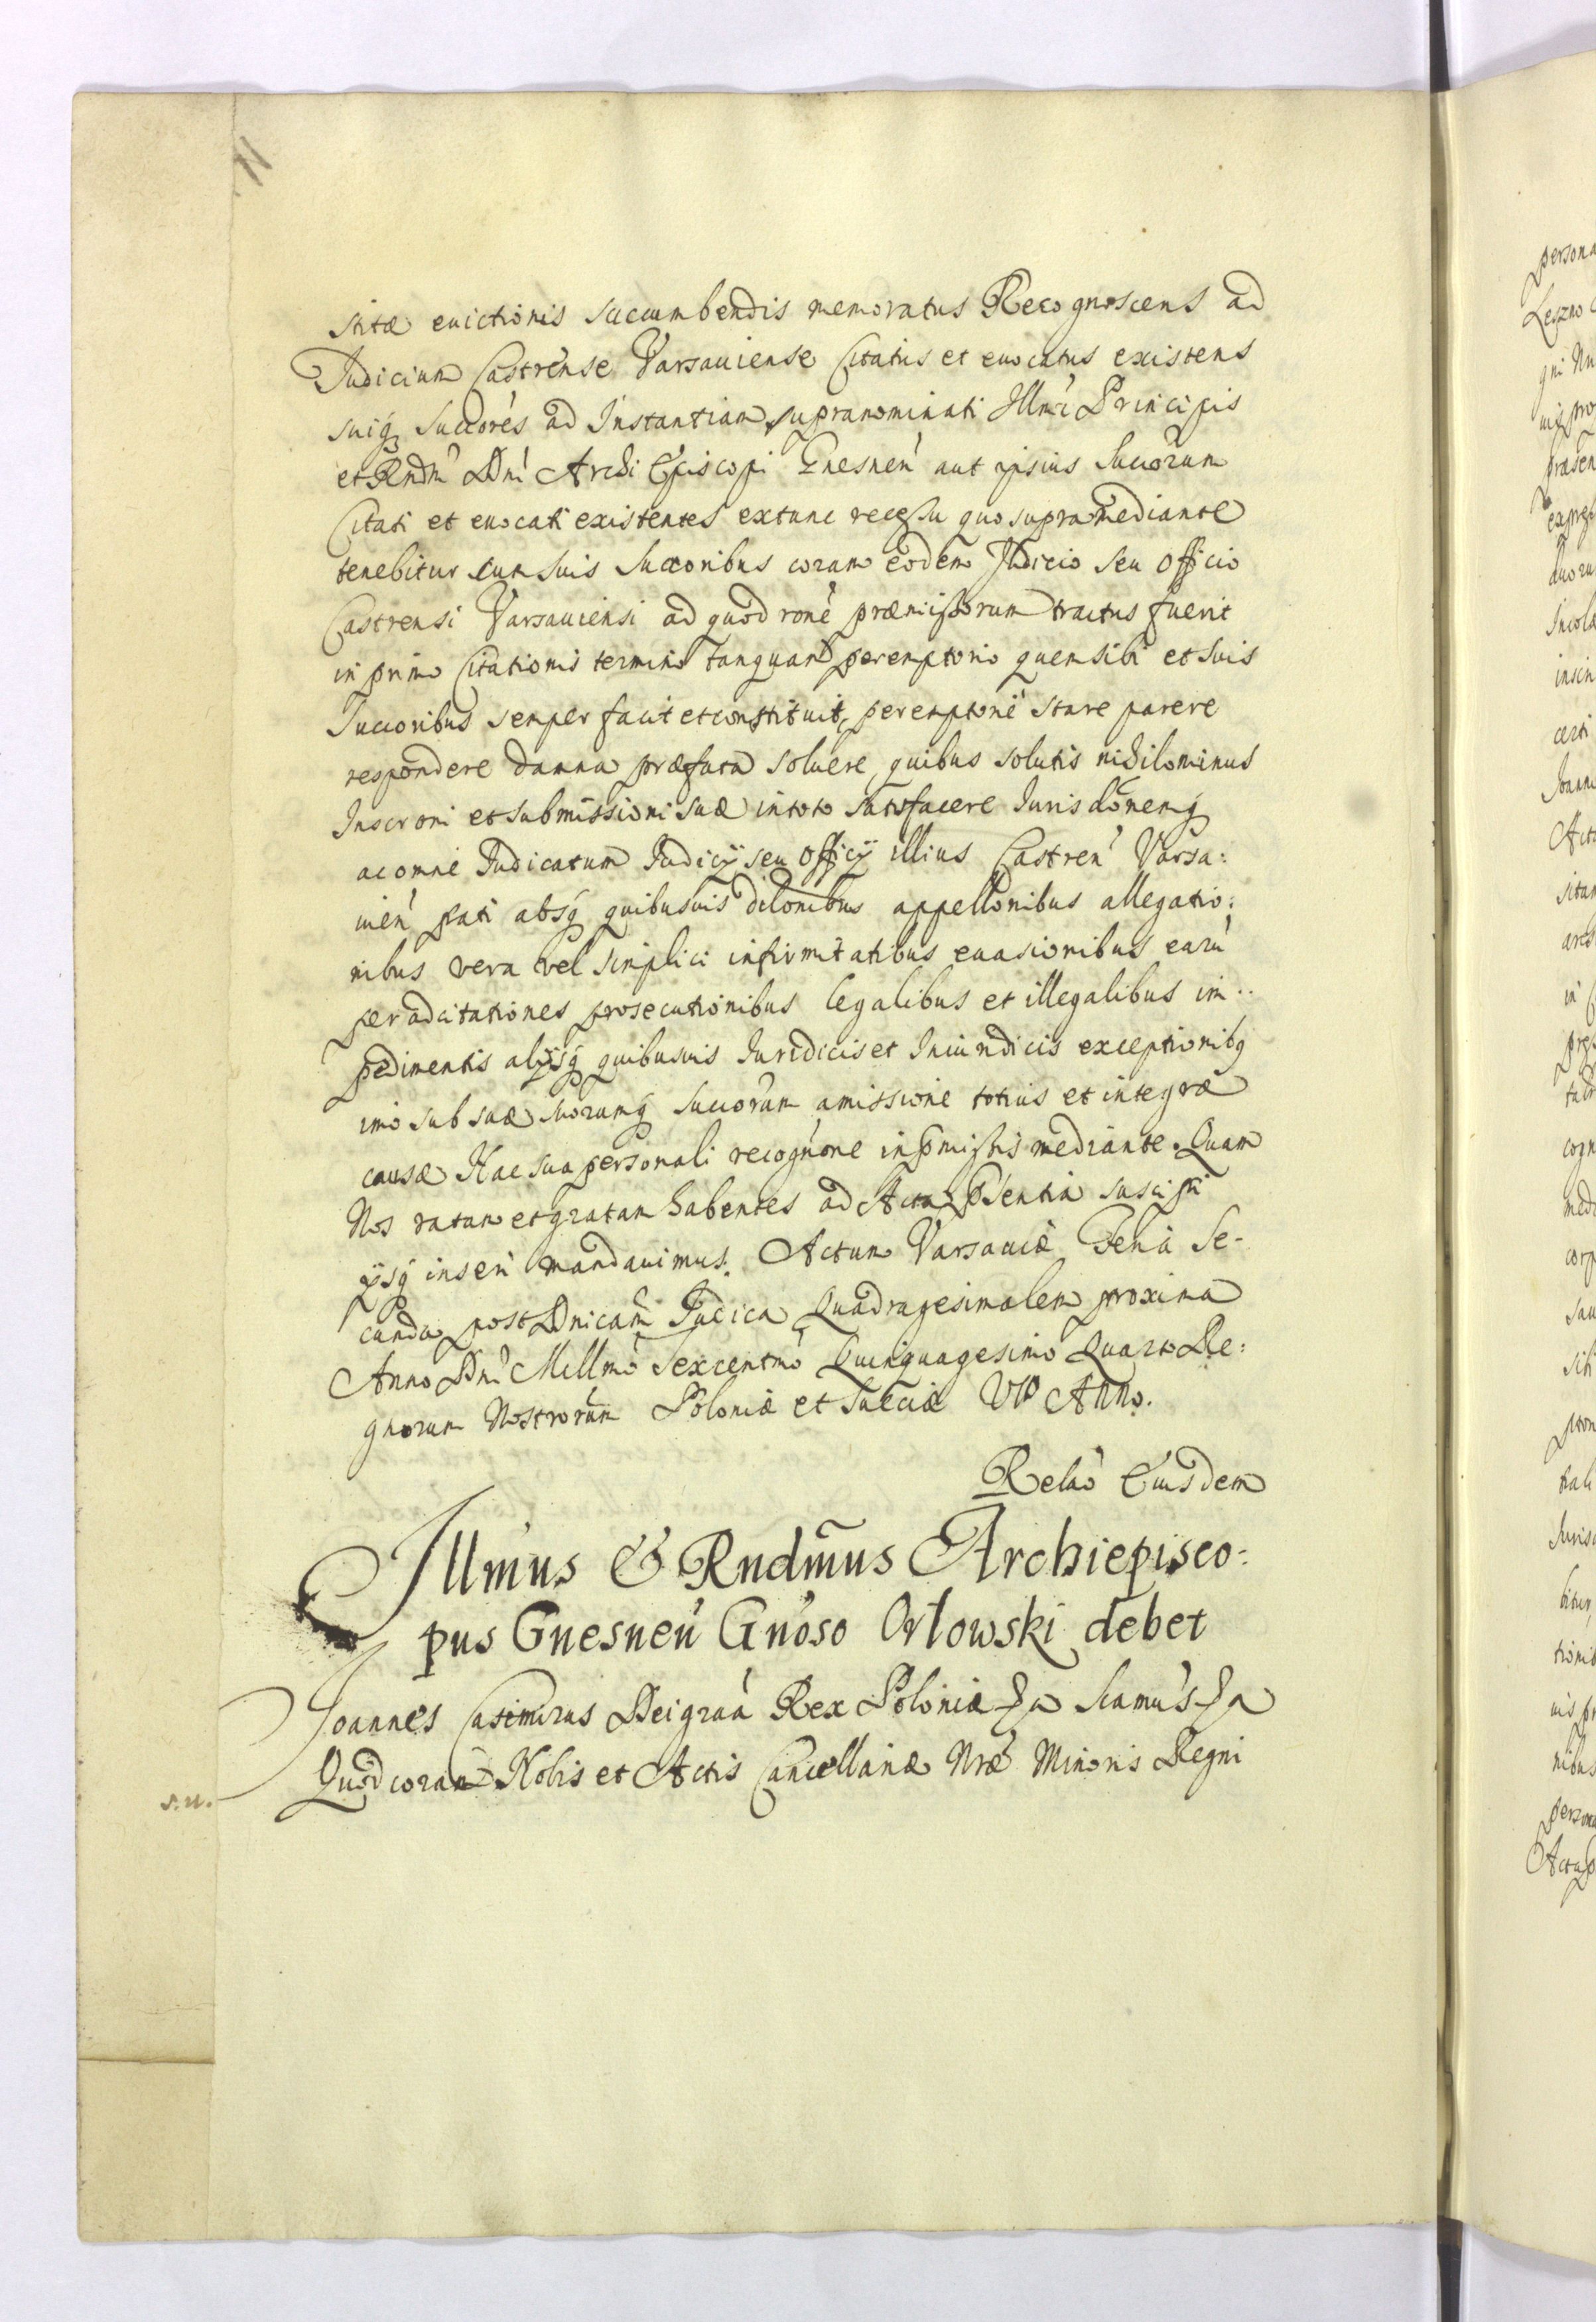 11
stitæ euictionis succumbendis memoratus Recognoscens ad
Judicium Castrense Varsauiense Citatus et euocatus existens
suiq̃ Succores ad Instantiam supranominati Illmi Principis
et Rndm̃ Dni Archi Episcopi Gnesnen aut ipsius Succorum
Citati et euocati existentes extunc recessu quo supra mediante
tenebitur cum suis Succoribus coram eodem Judicio seu Officio
Castrensi Varsauiensi ad quod rone præmissorum tractus fuerit
in primo Citationis termino tanquam peremptorio quem sibi et suis
Succoribus semper facit et constituit, peremptorie stare parere
respondere damna præfata soluere, quibus solutis nihilominus
Inscroni et submissioni suæ in toto satisfacere Jurisdōnemq̃
ac omne Judicatum Judicÿ seu Officÿ illius Castren Varsa:
uien pati absq̃ quibusuis dilonibus appellonibus allegatio:
nibus vera vel simplici infirmitatibus euasionibus earū
per adcitationes prosecutionibus legalibus et illegalibus im..
pedimentis alÿsq̃ quibusuis Juridicis et Iniuridicis exceptionibq
imo sub suæ suorumq̃ Succorum amissione totius et integræ
causæ Hac sua personali recognone in pmissis mediante. Quam
Nos ratam et gratam habentes ad Acta psentia suscipi
ÿsq̃ inseri mandauimus. Actum Varsauiæ Feria Se-
cunda post Dnicam Judica Quadragesimalem proxima
Anno Dni Millmo Sexcentmo Quinquagesimo Quarto Re:
gnorum Nostrorum Poloniæ et Sueciæ VIto Anno.
Relao Eiusdem
Illmus & Rndm̃us Archiepisco:
pus Gnesnen Gnoso Orłowski debet
Joannes Casimirus Dei graa Rex Poloniæ &a Scamus &a
Quod coram Nobis et Actis Cancellariæ Nræ Minoris Regni
s. u.